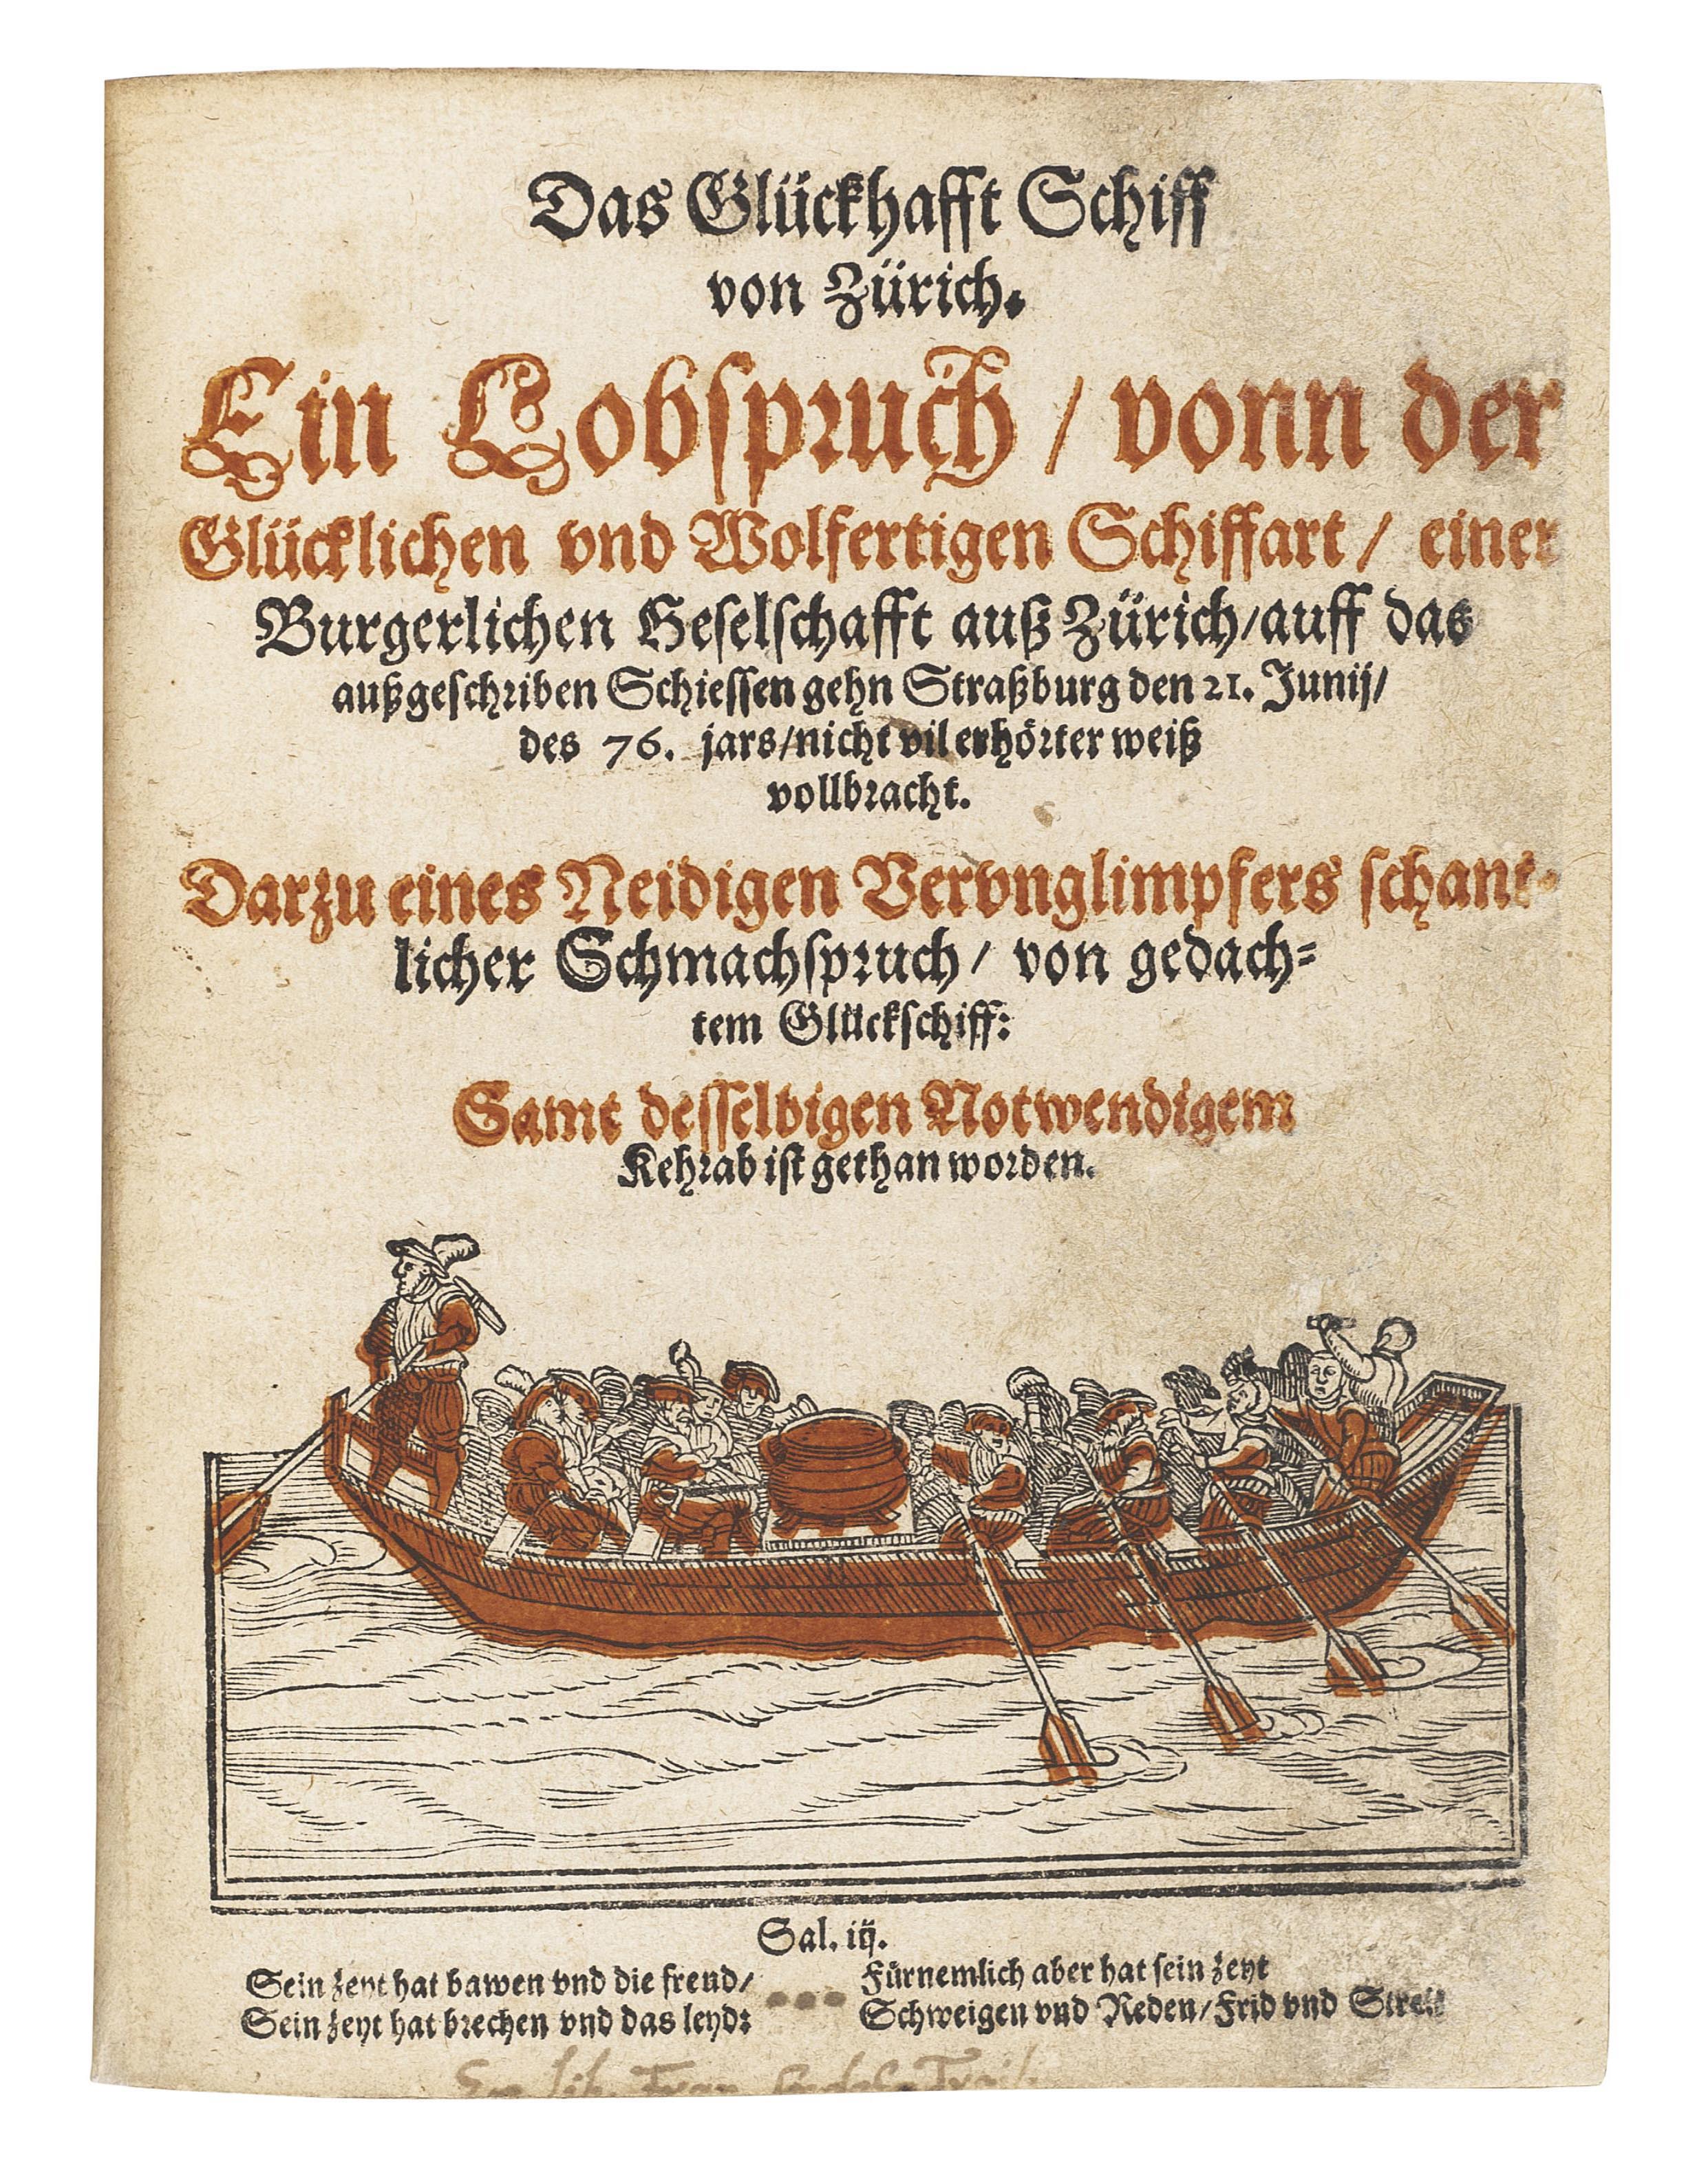 Das Glückhafft Schiff
von Zürich.
Ein Lobspruch / vonn der
Glücklichen vnd Wolfertigen Schiffart / einer
Burgerlichen Geselschafft auß Zürich/auff das
außgeschriben Schiessen gehn Straßburg den 21. Junij/
des 76. jars/nicht vil erhörter weiß
vollbracht.
Darzu eines Neidigen Vervnglimpfers schant-
licher Schmachspruch / von gedach-
tem Glückschiff:
Samt desselbigen Notwendigem
Kehrab ist gethan worden.
Sal. iij.
Sein zeyt hat bawen vnd die freud/
Sein zeyt hat brechen vnd das leyd:
Fürnemlich aber hat sein zeyt
Schweigen vnd Reden/Frid vnd Streit